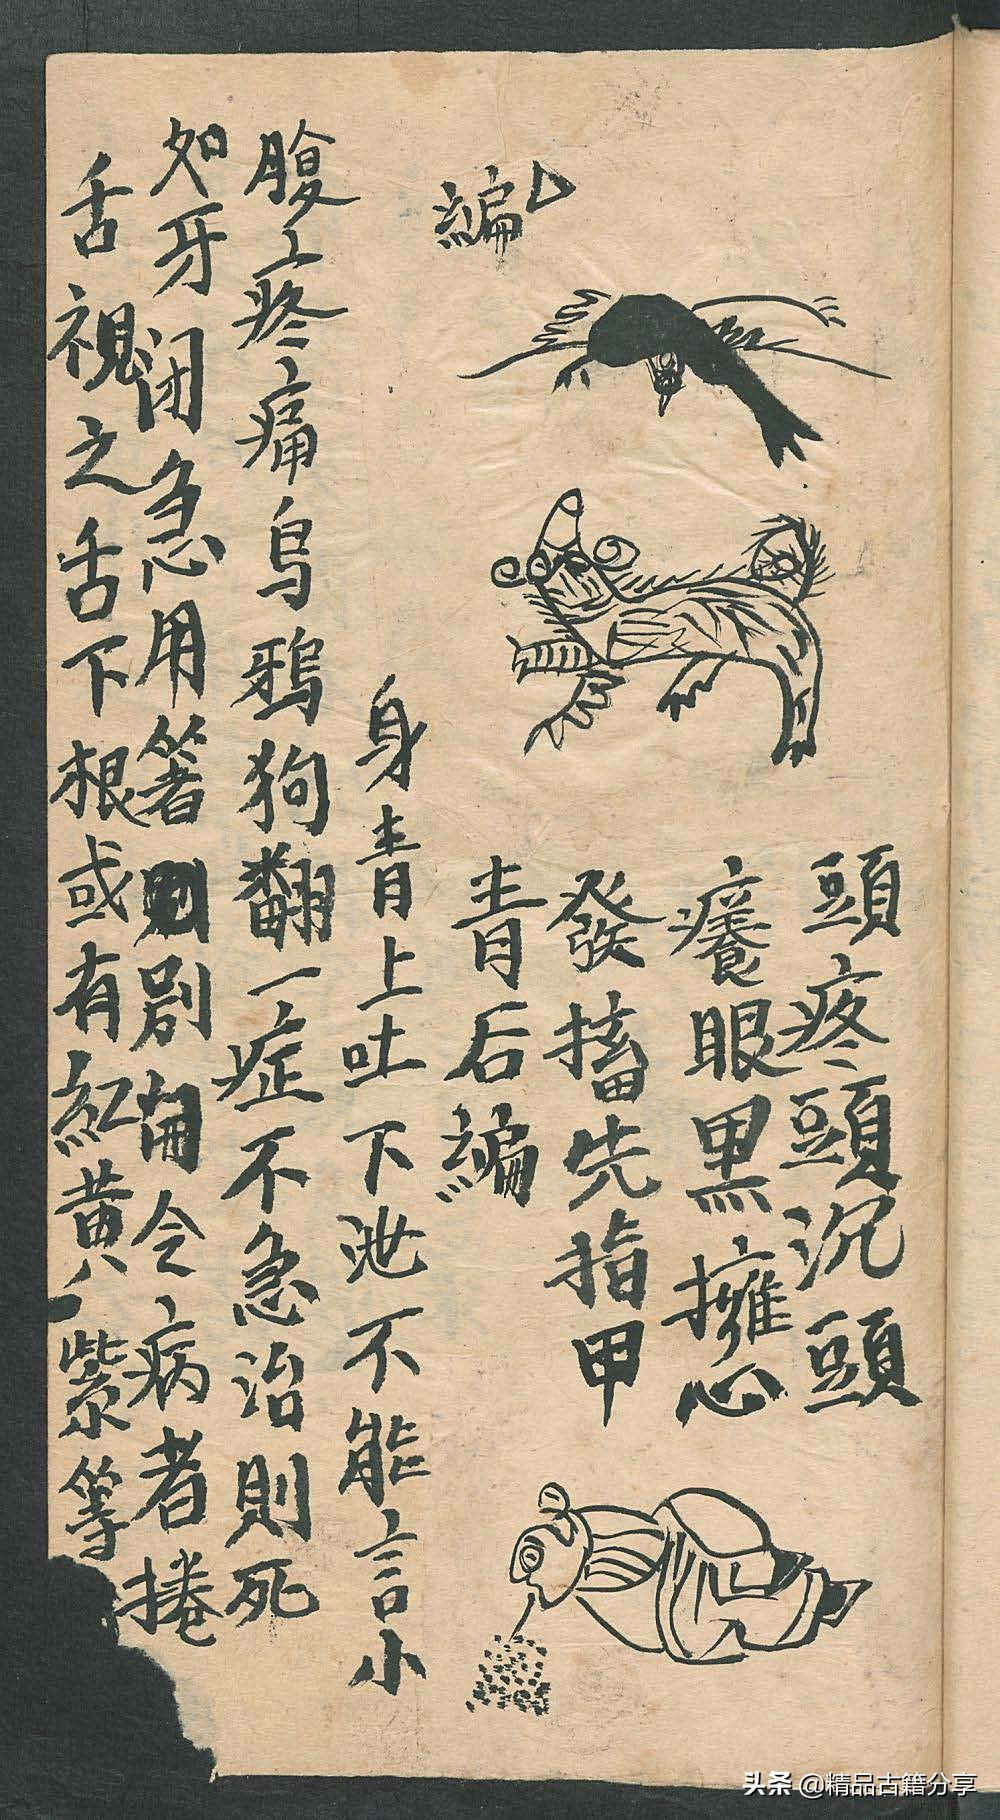 頭疼頭沉頭
癢眼黑擁心
發搐先指甲
青后編
編
身青上吐下泄不能言小
腹上疼痛烏鴉狗翻一症不急治則死
如牙闭急用箸別開令病者捲
舌視之舌下根或有紅黄紫等
头条 @精品古籍分享